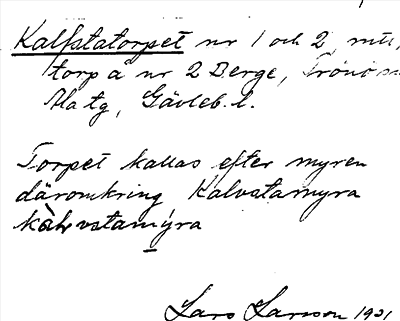 Kalfstatorpet nr 1 och 2, mtl,
torp å nr 2 Berge, Trönö sn
Ala tg, Gävleb. l.
Torpet kallas efter myren
däromkring Kalvstamyra
kàlvstamýra
Lars Larsson 1921